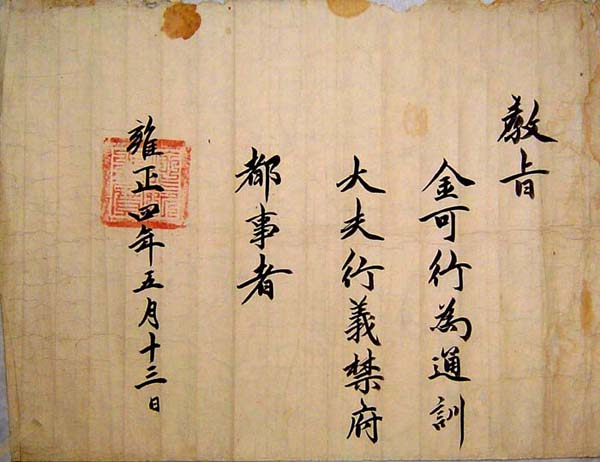 教旨
金可行為通訓
大夫行義禁府
都事者
雍正四年五月十三日